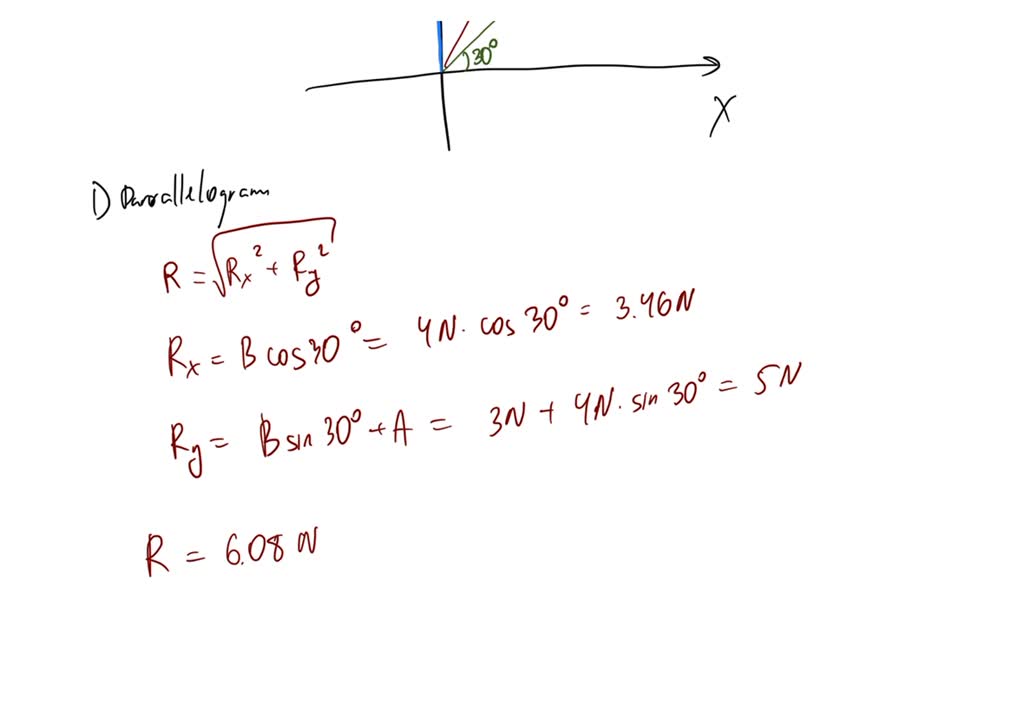 30°
X
1) Parallelogram
R = √Rx² + Ry²
Rx = B cos 30° = 4N · cos 30° = 3.46N
Ry = B sin 30° + A = 3N + 4N · sin 30° = 5N
R = 6.08 N